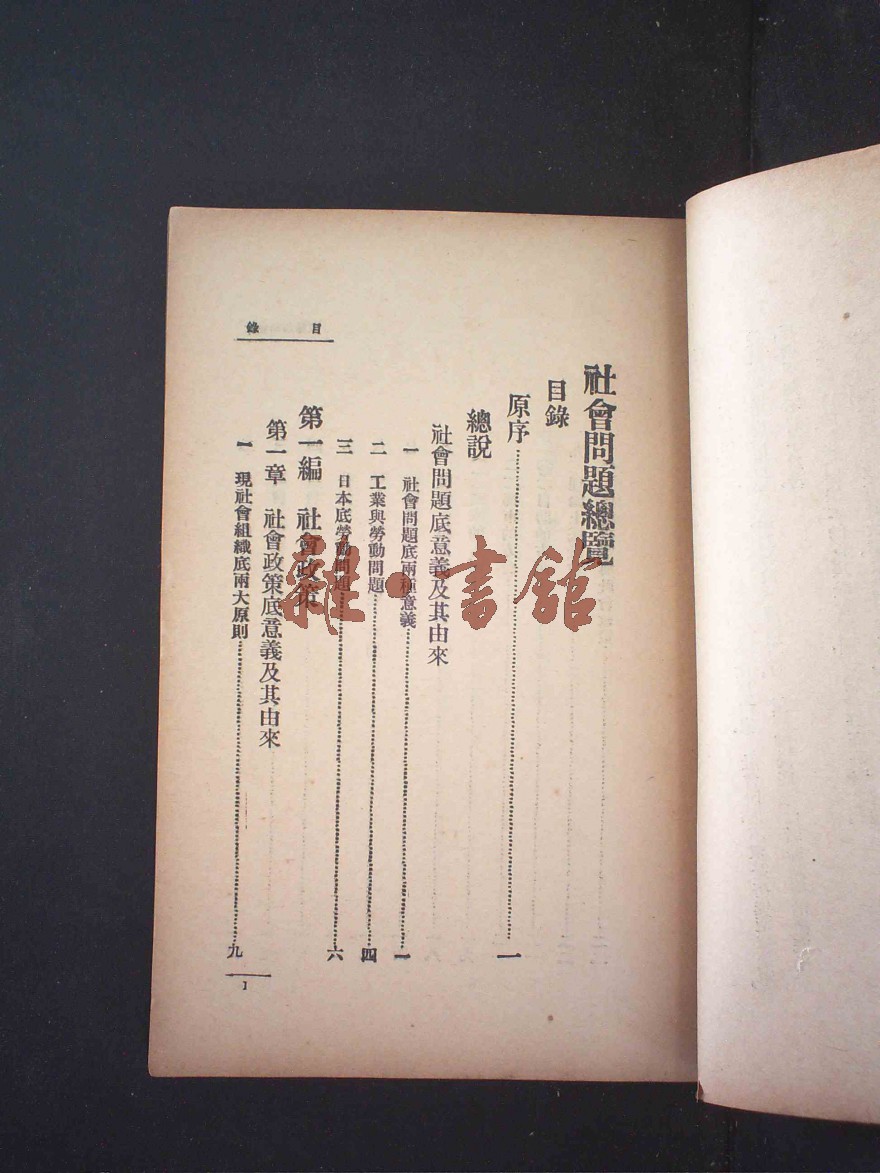 社會問題總覽
目錄
原序……一
總說
社會問題底意義及其由來
一 社會問題底兩種意義……一
二 工業與勞動問題……四
三 日本底勞動問題……六
第一編 社會政策
第一章 社會政策底意義及其由來
一 現社會組織底兩大原則……九
目錄
1
雜·書館